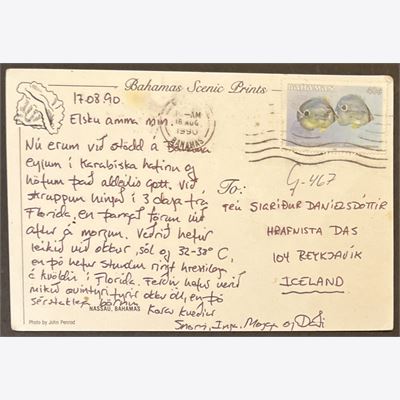 Bahamas Scenic Prints
17.08.90.
Elsku amma mín.
Nú erum við stödd á Bahama
eyjum í Karabiska hafinu og
höfum það aldeilis gott. Við
skruppum hingað í 3 daga frá
Florida, en þangað förum við
aftur á morgun. Veðrið hefur
leikið við okkur, sól og 32-38° C,
en þó hefur stundum rignt hressilega
á kvöldin í Florida. Ferðin hefur verið
mikið ævintýri fyrir okkur öll, en þó
sérstaklega börnin.
Kærar kveðjur
Snorri, Inga, og
NASSAU, BAHAMAS
Photo by John Penrod
AM
18 AUG
1990
BAHAMAS
BAHAMAS
40c
G-467
To:
FRÚ SIGRÍÐUR DANÍELSDÓTTIR
HRAFNISTA DAS
104 REYKJAVÍK
ICELAND